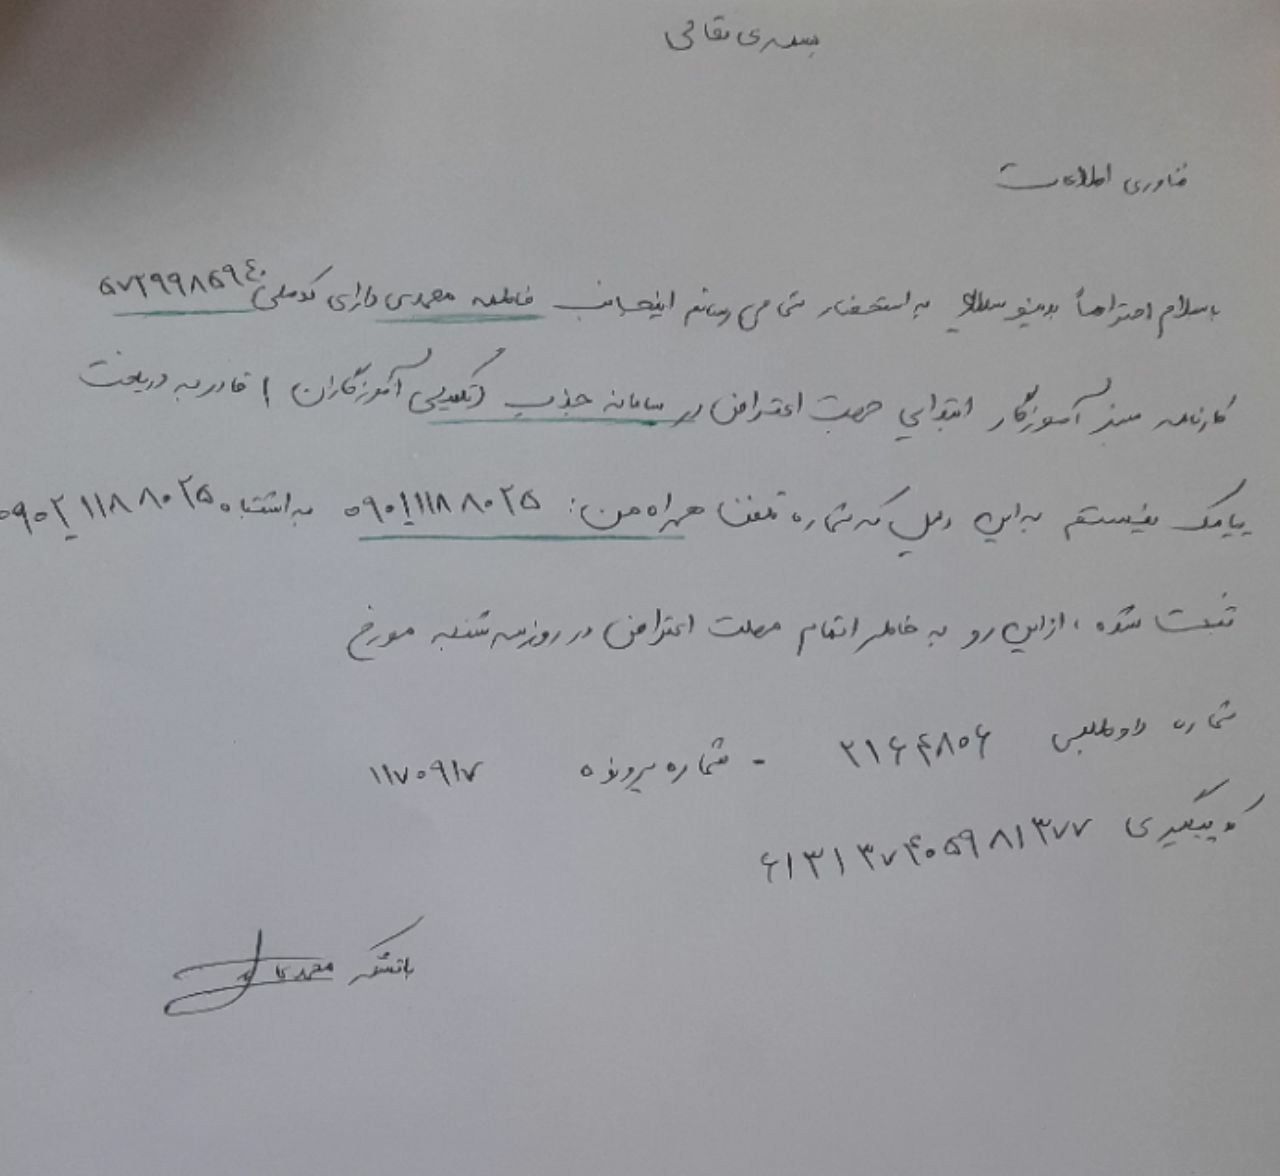 بسمه‌ی تعالی
فناوری اطلاعات
باسلام احتراماً بدینوسیله به استحضار شما می رسانم اینجانب فاطمه محمدی دارای کدملی ۵۷۲۹۹۸۵۹۴۰
کارنامه سبز آموزگار ابتدایی جهت اعتراض در سامانه جذب (تکمیلی آموزگاران) قادر به دریافت
پیامک نیستم به این دلیل که شماره تلفن همراه من: ۰۹۰۱۱۱۸۸۰۲۵ به اشتباه ۰۹۰۲۱۱۸۸۰۲۵
ثبت شده، ازاین رو به خاطر اتمام مهلت اعتراض در روز سه شنبه مورخ
شماره داوطلبی ۲۱۶۴۸۰۶ - شماره پرونده ۱۱۷۰۹۱۷
کد پیگیری ۶۱۳۱۳۷۴۰۵۹۸۱۳۷۷
باتشکر محمدی